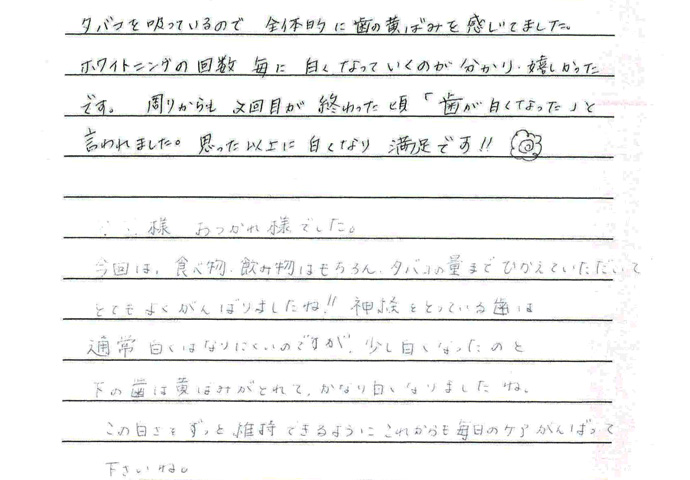 タバコを吸っているので 全体的に歯の黄ばみを感じてました。
ホワイトニングの回数 毎に 白くなっていくのが 分かり、嬉しかった
です。 周りからも 2回目が 終わった頃「歯が白くなった」と
言われました。思った以上に 白くなり 満足です!!
様 おつかれ様でした。
今回は、食べ物、飲み物はもちろん、タバコの量まで ひかえていただいて
とてもよくがんばりましたね!! 神経をとっている歯は
通常 白くはなりにくいのですが、少し白くなったのと
下の歯は黄ばみがとれて、かなり白くなりましたね。
この白さをずっと維持できるように これからも毎日のケアがんばって
下さいね。